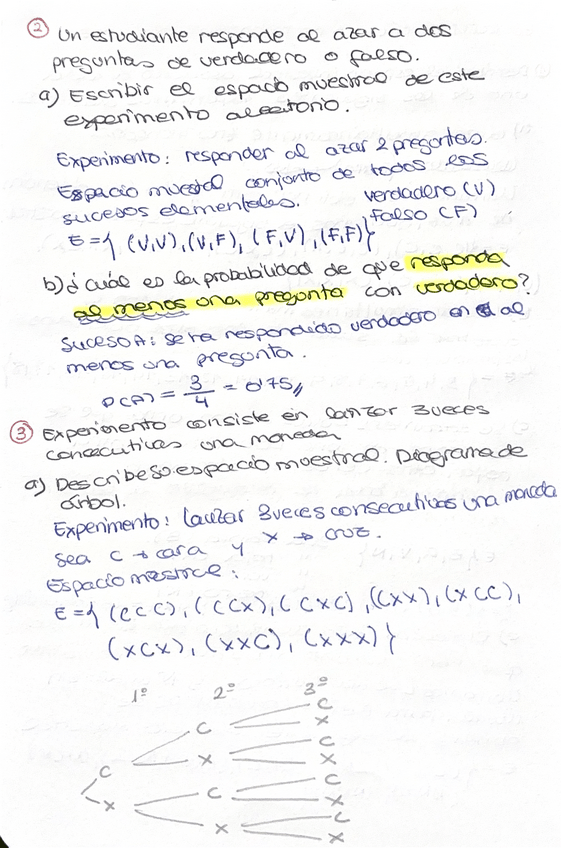 ② Un estudiante responde al azar a dos
preguntas de verdadero o falso.
a) Escribir el espacio muestral de este
experimento aleatorio.
Experimento: responder al azar 2 preguntas.
Espacio muestral conjunto de todos los
sucesos elementales. verdadero (V)
falso (F)
E = { (V,V), (V,F), (F,V), (F,F) }
b) ¿Cuál es la probabilidad de que responda
al menos una pregunta con verdadero?
Suceso A: se ha respondido verdadero en al
menos una pregunta.
P(A) = 3/4 = 0'75//
③ Experimento consiste en lanzar 3 veces
consecutivas una moneda
a) Describe su espacio muestral. Diagrama de
árbol.
Experimento: lanzar 3 veces consecutivas una moneda
sea C → cara y X → cruz.
Espacio mestral:
E = { (CCC), (CCX), (CXC), (CXX), (XCC),
(XCX), (XXC), (XXX) }
1º 2º 3º
C
C X
C
C X X
C
X C X
C
X X